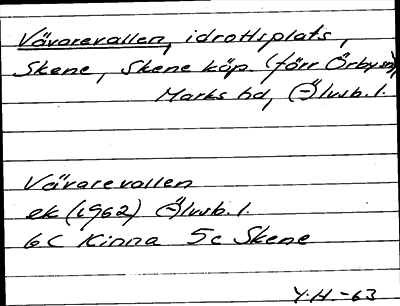 Vävarevallen, idrottsplats,
Skene, Skene köp. (förr Örby sn),
Marks hd, Älvsb.l.
Vävarevallen
ek (1962) Älvsb.l.
6c Kinna 5c Skene
Y.H.-63